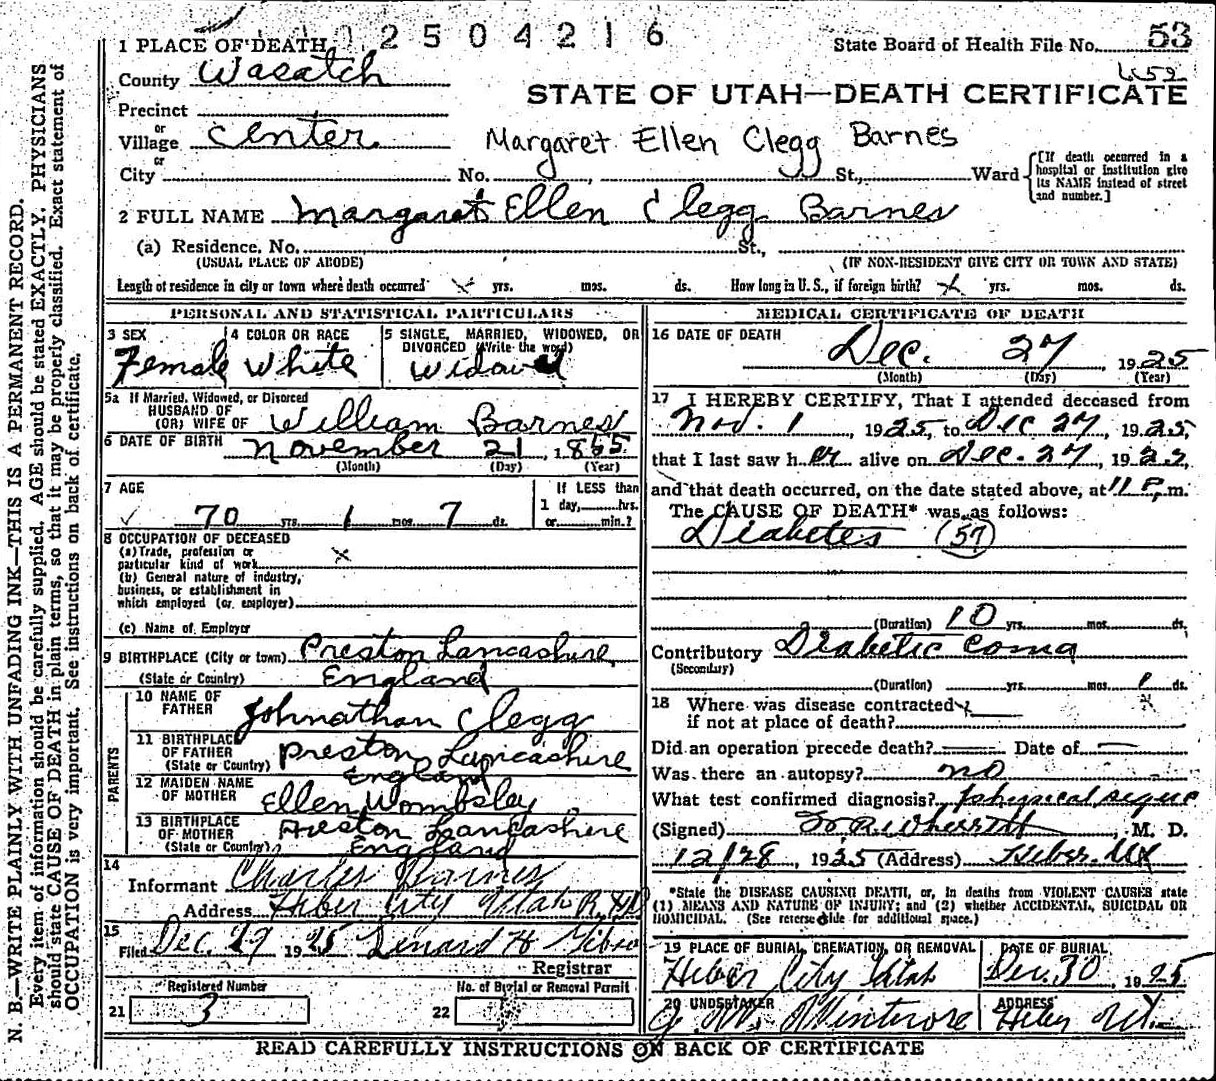 12504216
1 PLACE OF DEATH
State Board of Health File No. 53
County Wasatch
652
STATE OF UTAH—DEATH CERTIFICATE
Precinct
or
Village Center
Margaret Ellen Clegg Barnes
or
City No. , St., Ward
[If death occurred in a hospital or institution give its NAME instead of street and number.]
2 FULL NAME Margaret Ellen Clegg Barnes
(a) Residence. No. St.,
(USUAL PLACE OF ABODE) (IF NON-RESIDENT GIVE CITY OR TOWN AND STATE)
Length of residence in city or town where death occurred yrs. mos. ds. How long in U. S., if foreign birth? yrs. mos. ds.
PERSONAL AND STATISTICAL PARTICULARS
3 SEX
Female
4 COLOR OR RACE
White
5 SINGLE, MARRIED, WIDOWED, OR DIVORCED (Write the word)
Widowed
5a If Married, Widowed, or Divorced
HUSBAND OF
(OR) WIFE OF William Barnes
6 DATE OF BIRTH November 21, 1855
(Month) (Day) (Year)
7 AGE
70 yrs. 1 mos. 7 ds.
If LESS than
1 day, hrs.
or min.?
8 OCCUPATION OF DECEASED
(a) Trade, profession or
particular kind of work x
(b) General nature of industry,
business, or establishment in
which employed (or employer)
(c) Name of Employer
9 BIRTHPLACE (City or town) Preston Lancashire
(State or Country) England
PARENTS
10 NAME OF
FATHER Johnathan Clegg
11 BIRTHPLACE
OF FATHER
(State or Country) Preston Lancashire
England
12 MAIDEN NAME
OF MOTHER Ellen Wombsley
13 BIRTHPLACE
OF MOTHER Preston Lancashire
(State or Country) England
14
Informant Charles Barnes
Address Heber City Utah
15
Filed Dec. 29 1925
Registrar
Registered Number
21 3
No. of Burial or Removal Permit
22
MEDICAL CERTIFICATE OF DEATH
16 DATE OF DEATH
Dec. 27 1925
(Month) (Day) (Year)
17 I HEREBY CERTIFY, That I attended deceased from
Nov. 1, 1925, to Dec 27, 1925,
that I last saw her alive on Dec. 27, 1925,
and that death occurred, on the date stated above, at 11 P. m.
The CAUSE OF DEATH* was as follows:
Diabetes (57)
(Duration) 10 yrs. mos. ds.
Contributory Diabetic coma
(Secondary)
(Duration) yrs. mos. 1 ds.
18 Where was disease contracted
if not at place of death?
Did an operation precede death? Date of
Was there an autopsy? no
What test confirmed diagnosis? physical
(Signed) , M. D.
12/28, 1925 (Address) Heber
*State the DISEASE CAUSING DEATH, or, in deaths from VIOLENT CAUSES state
(1) MEANS AND NATURE OF INJURY; and (2) whether ACCIDENTAL, SUICIDAL OR
HOMICIDAL. (See reverse side for additional space.)
19 PLACE OF BURIAL, CREMATION, OR REMOVAL
Heber City Utah
DATE OF BURIAL
Dec. 30, 1925
20 UNDERTAKER
ADDRESS
Heber Ut.
READ CAREFULLY INSTRUCTIONS ON BACK OF CERTIFICATE
N. B.—WRITE PLAINLY WITH UNFADING INK—THIS IS A PERMANENT RECORD.
Every item of information should be carefully supplied. AGE should be stated EXACTLY. PHYSICIANS
should state CAUSE OF DEATH in plain terms, so that it may be properly classified. Exact statement of
OCCUPATION is very important. See instructions on back of certificate.